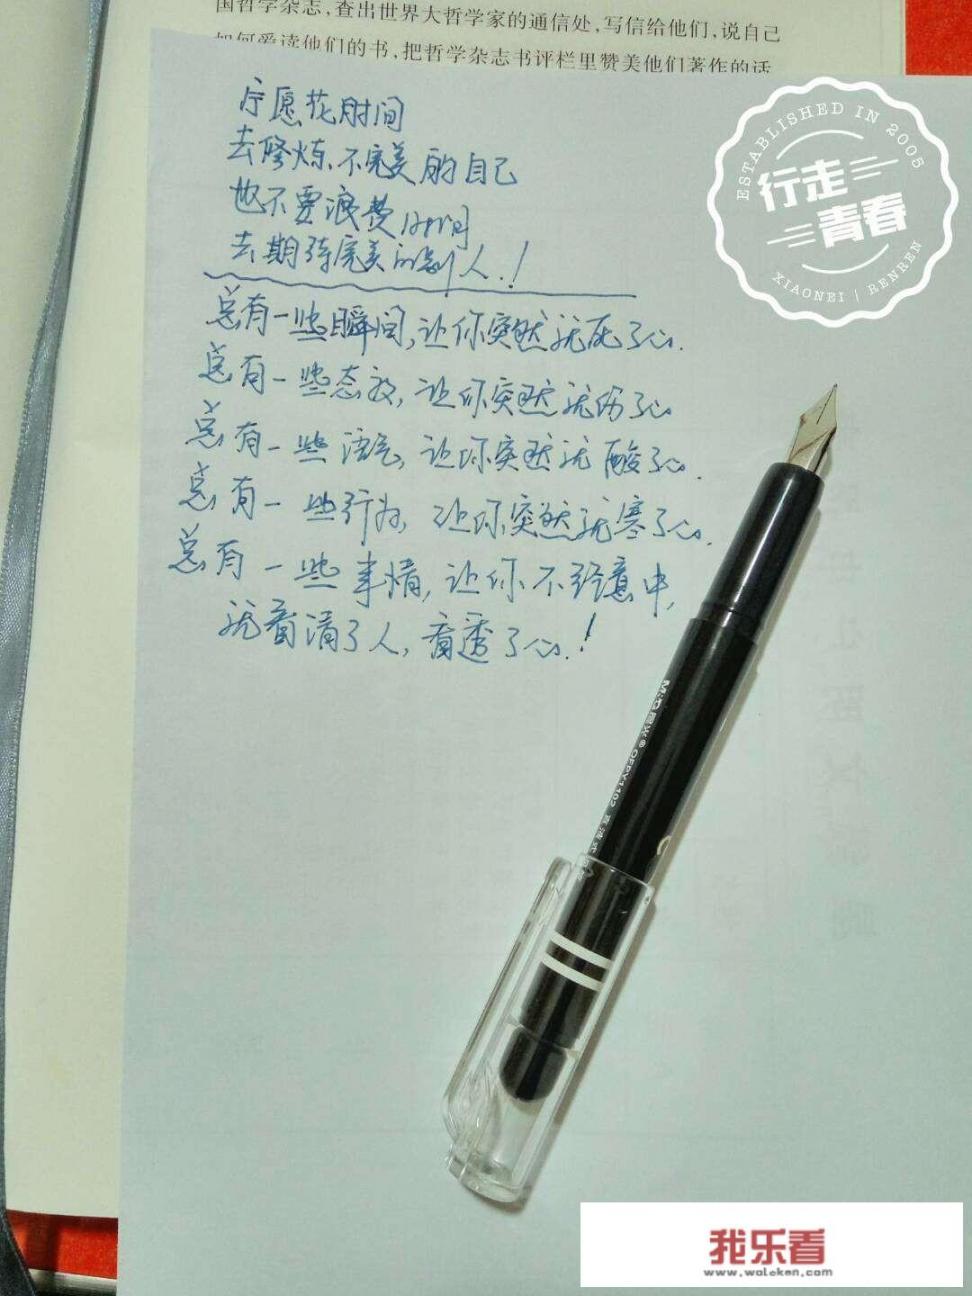 国哲学杂志,查出世界大哲学家的通信处,写信给他们,说自己
如何爱读他们的书,把哲学杂志书评栏里赞美他们著作的话
宁愿花时间
去修炼不完美的自己
也不要浪费时间
去期待完美的别人!
总有一些瞬间,让你突然就死了心.
总有一些态度,让你突然就伤了心
总有一些语气,让你突然就酸了心.
总有一些行为,让你突然就寒了心.
总有一些事情,让你不经意中,
就看清了人,看透了心!
ESTABLISHED IN 2005
行走
青春
XIAONEI | RENREN
M&G晨光®
我乐看
www.woleken.com